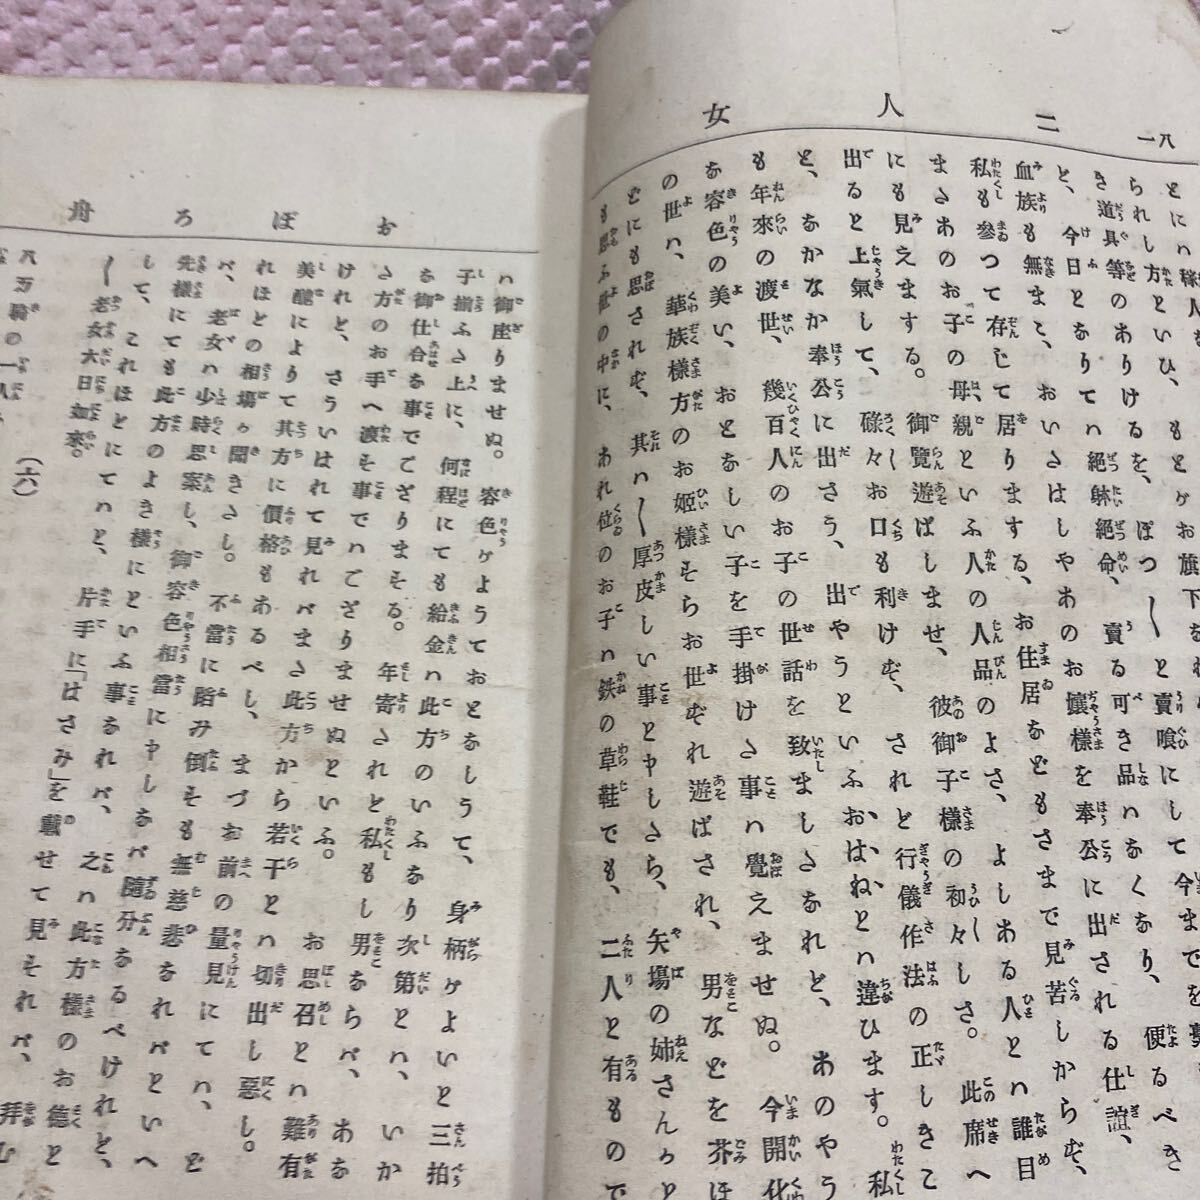 二人女
八一
とにハ稼人を
お旗下をね
して今までを
られし方といひ、もとゟ
き道具等のありけるを、ぽつ〱と賣喰にして
便るべき
と、今日となりてハ絕躰絕命、賣る可き品ハなくなり、
血族も無まゝ、おいさはしやあのお孃樣を奉公に出される仕誼、
私も參つて存じて居りまする、お住居などもさまで見苦しからず、
まさあのお子の母親といふ人の人品のよさ、よしある人とハ誰目
にも見えまする。御覽遊ばしませ、彼御子樣の初々しさ。此席へ
出ると上氣して、碌々お口も利けず、されと行儀作法の正しきこ
と、なかなか奉公に出さう、出やうといふおはねとハ違ひます。私
も年來の渡世、幾百人のお子の世話を致ましさなれと、あのやう
な容色の美い、おとなしい子を手掛けさ事ハ覺えませぬ。今開化
の世ハ、華族樣方のお姬樣そらお世ずれ遊ばされ、男などを芥ほ
どにも思されず、其ハ〱厚皮しい事と申しさら、矢場の姉さんゟと
も思ふ世の中に、あれ位のお子ハ鉄の草鞋でも、二人と有もので
おぼろ舟
ハ御座りませぬ。容色ゟようておとなしうて、身柄ゟよいと三拍
子揃ふさ上に、何程にても給金ハ此方のいふなり次第とハ、いか
な御仕合な事でござりまそる。年寄されと私もし男ならバ、あな
さ方のお手へ渡そ事でハござりませぬといふ。お思召とハ難有
けれと、さういはれて見れバまさ此方から若干とハ切出し惡し。
美醜によりて其方に價格もあるべし、まづお前の量見にてハ、ど
れほとの相場ゟ聞きさし。不當に踏み倒そも無慈悲なれバといへ
バ、老女ハ少時思案し、御容色相當に申しなバ隨分なるべけれど、
先樣にても此方のよき樣にといふ事なれバ、之ハ此方樣のお德と
して、これほとにてハと、片手に「はさみ」を載せて見それバ、拜む
〱老女六日如來。
(六)